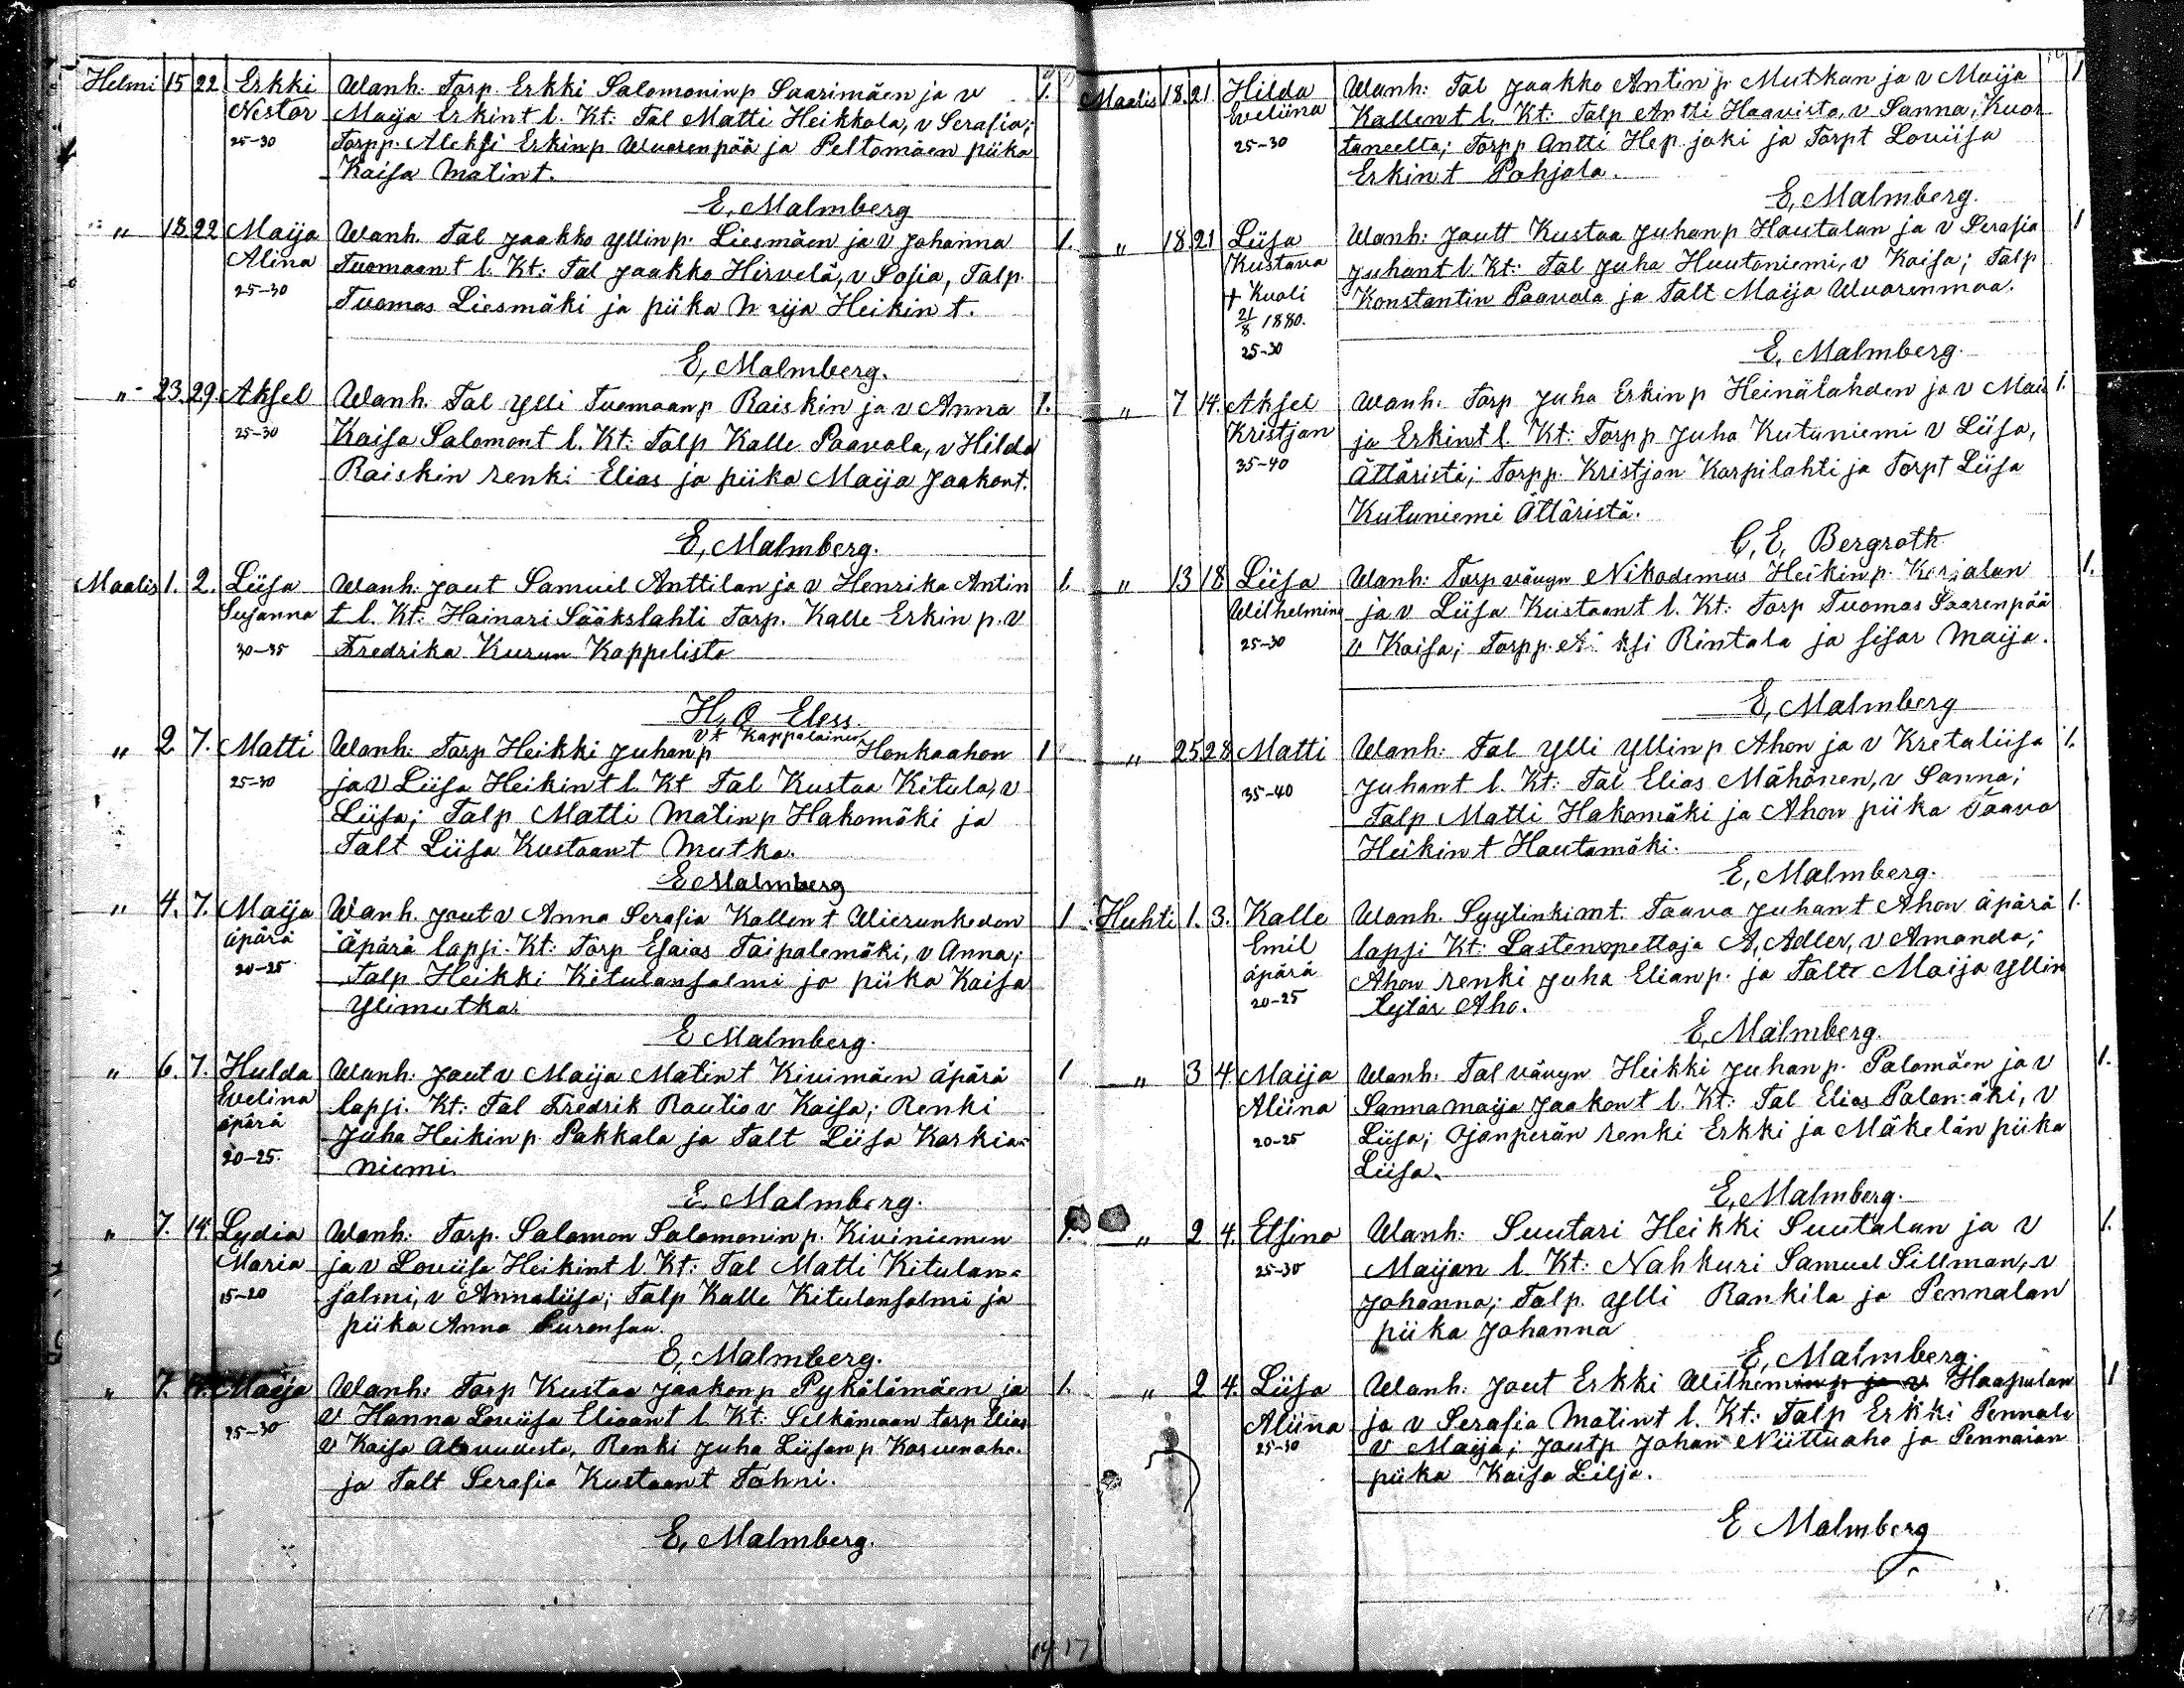 Helmi 15 22 Erkki Wanh. Torp. Erkki Salomonin p Saarimäen ja v 1.
Nestor Maija Erkin t l. Kt: Tal Matti Heikkola, v Serafia;
25-30 Torpp. Aleksi Erkin p Wuorenpää ja Peltomäen piika
Kaisa Matin t.
E, Malmberg
" 18 22 Maija Wanh. Tal Jaakko Yllin p. Liesmäen ja v Johanna 1.
Alina Tuomaan t l. Kt: Tal Jaakko Hirvelä, v Sofia, Talp.
25-30 Tuomas Liesmäki ja piika Maija Heikin t.
E, Malmberg.
" 23. 29 Aksel Wanh. Tal Ylli Tuomaan p Raiskin ja v Anna 1.
25-30 Kaisa Salomon t l. Kt: Talp Kalle Paavola, v Hilda
Raiskin renki Elias ja piika Maija Jaakon t.
E, Malmberg.
Maalis 1. 2. Liisa Wanh. Jout Samuel Anttilan ja v Henrika Antin 1.
Susanna t l. Kt: Hainari Sääkslahti Torp. Kalle Erkin p. v
30-35 Fredrika Kurun Kappelista
H, O Eless.
vt Kappalainen
" 2 7. Matti Wanh: Torp Heikki Juhan p Honkaahon 1
25-30 ja v Liisa Heikin t l. Kt Tal Kustaa Kitula, v
Liisa; Talp Matti Matin p Hakomäki ja
Talt Liisa Kustaan t Mutka.
E Malmberg
" 4. 7. Maija Wanh. Jout v Anna Serafia Kallen t Wierunkeden 1
äpärä äpärä lapsi. Kt: Torp Esaias Taipalemäki, v Anna;
20-25 Talp Heikki Kitulansalmi ja piika Kaisa
Ylimutka.
E Malmberg.
" 6. 7. Hulda Wanh. Jout v Maija Matin t Kivimäen äpärä 1
Evelina lapsi. Kt: Tal Fredrik Rautio v Kaisa; Renki
äpärä Juha Heikin p. Pakkala ja Talt Liisa Karkia-
20-25. niemi.
E. Malmberg.
" 7. 14. Lydia Wanh: Torp. Salomon Salomonin p. Kiviniemen 1.
Maria ja v Loviisa Heikin t l. Kt: Tal Matti Kitulan-
15-20 salmi, v Annaliisa; Talp Kalle Kitulansalmi ja
piika Anna Surensuu.
E, Malmberg.
" 7. 14. Maija Wanh: Torp Kustaa Jaakon p Pykälämäen ja 1.
25-30 v Hanna Loviisa Eliaan t l. Kt: Selkämaan torp Elias
v Kaisa Alavuudesta, Renki Juha Liisan p Karvenaho
ja Talt Serafia Kustaan t Tähni.
E, Malmberg.
14 17
Maalis 18. 21 Hilda Wanh: Tal Jaakko Antin p Mutkan ja v Maija 1
Eveliina Kallen t l. Kt: Talp Antti Haavisto, v Sanna, Kuor
25-30 taneelta; Torpp Antti Hep joki ja Torpt Loviisa
Erkin t Pohjola.
E, Malmberg.
" 18 21 Liisa Wanh: Joutt Kustaa Juhan p Hautalan ja v Serafia 1
Kustava Juhan t l. Kt: Tal Juha Huutoniemi, v Kaisa; Talp
† Kuoli Konstantin Paavola ja Talt Maija Wuorenmaa.
21/8 1880.
25-30
E, Malmberg.
" 7 14. Aksel Wanh: Torp Juha Erkin p Heinälahden ja v Mai 1.
Kristjan ja Erkin t l. Kt: Torpp Juha Kutuniemi v Liisa,
35-40 Ättäristä; Torpp. Kristjan Karpilahti ja Torpt Liisa
Kutuniemi Ättäristä.
C, E, Bergroth
" 13 18 Liisa Wanh: Torp vävyn Nikodemus Heikin p. Karjalan 1.
Wilhelmina ja v Liisa Kustaan t l. Kt: Torp Tuomas Saarenpää
25-30 v Kaisa; Torpp. Aleksi Rintala ja sisar Maija.
E, Malmberg
" 25 28 Matti Wanh: Tal Ylli Yllin p Ahon ja v Kretaliisa 1.
35-40 Juhan t l. Kt: Tal Elias Mähönen, v Sanna;
Talp Matti Hakomäki ja Ahon piika Taava
Heikin t Hautamäki.
E, Malmberg.
Huhti 1. 3. Kalle Wanh. Syytinkimt. Taava Juhan t Ahon äpärä 1.
Emil lapsi Kt: Lastenopettaja A, Adler, v Amanda;
äpärä Ahon renki Juha Elian p. ja Talt Maija Yllin
20-25 tytär Aho.
E, Malmberg.
" 3 4 Maija Wanh: Tal vävyn Heikki Juhan p. Palomäen ja v 1.
Aliina Sanna Maija Jaakon t l. Kt: Tal Elias Palomäki, v
20-25 Liisa; Ojanperän renki Erkki ja Mäkelän piika
Liisa.
E, Malmberg.
" 2 4. Elsina Wanh: Suutari Heikki Suutalan ja v 1.
25-30 Maijan l. Kt: Nahkuri Samuel Sillman, v
Johanna; Talp. Ylli Rankila ja Pennalan
piika Johanna
E, Malmberg.
" 2 4. Liisa Wanh: Jout Erkki Wilhemin p ja v Haapalan 1
Aliina ja v Serafia Matin t l. Kt: Talp Erkki Pennala
25-30 v Maija; Joutp Johan Niittuaho ja Pennalan
piika Kaisa Lilja.
E Malmberg
17 23